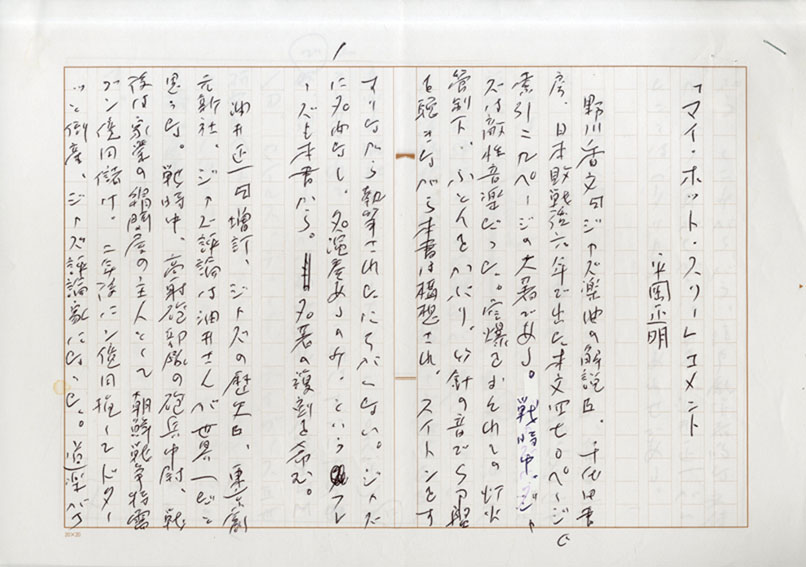 「マイ・ホット・スリー」コメント
平岡正明
野川香文『ジャズ楽曲の解説』、千代田書
房、日本敗戦後六年で出た本文四七〇ページ、
索引二八ページの大著である。戦時中、ジャ
ズは敵性音楽だった。空爆をおそれての灯火
管制下、ふとんをかぶり、竹針の音でSP盤
を聴きながら本書は構想され、スイトンをす
すりながら執筆されたにちがいない。ジャズ
に名曲なし、名演奏あるのみ、という フレ
ーズも本書から。 名著の復刻を念ず。
油井正一『増訂、ジャズの歴史』、東京創
元新社、ジャズ評論は油井さんが世界一だと
思うな。戦時中、高射砲部隊の砲兵中尉、戦
後は家業の 屋の主人として朝鮮戦争特需
で 億円儲け、二年後に 億円損してドター
ッと倒産、ジャズ評論家になった。道楽が
1
20×20